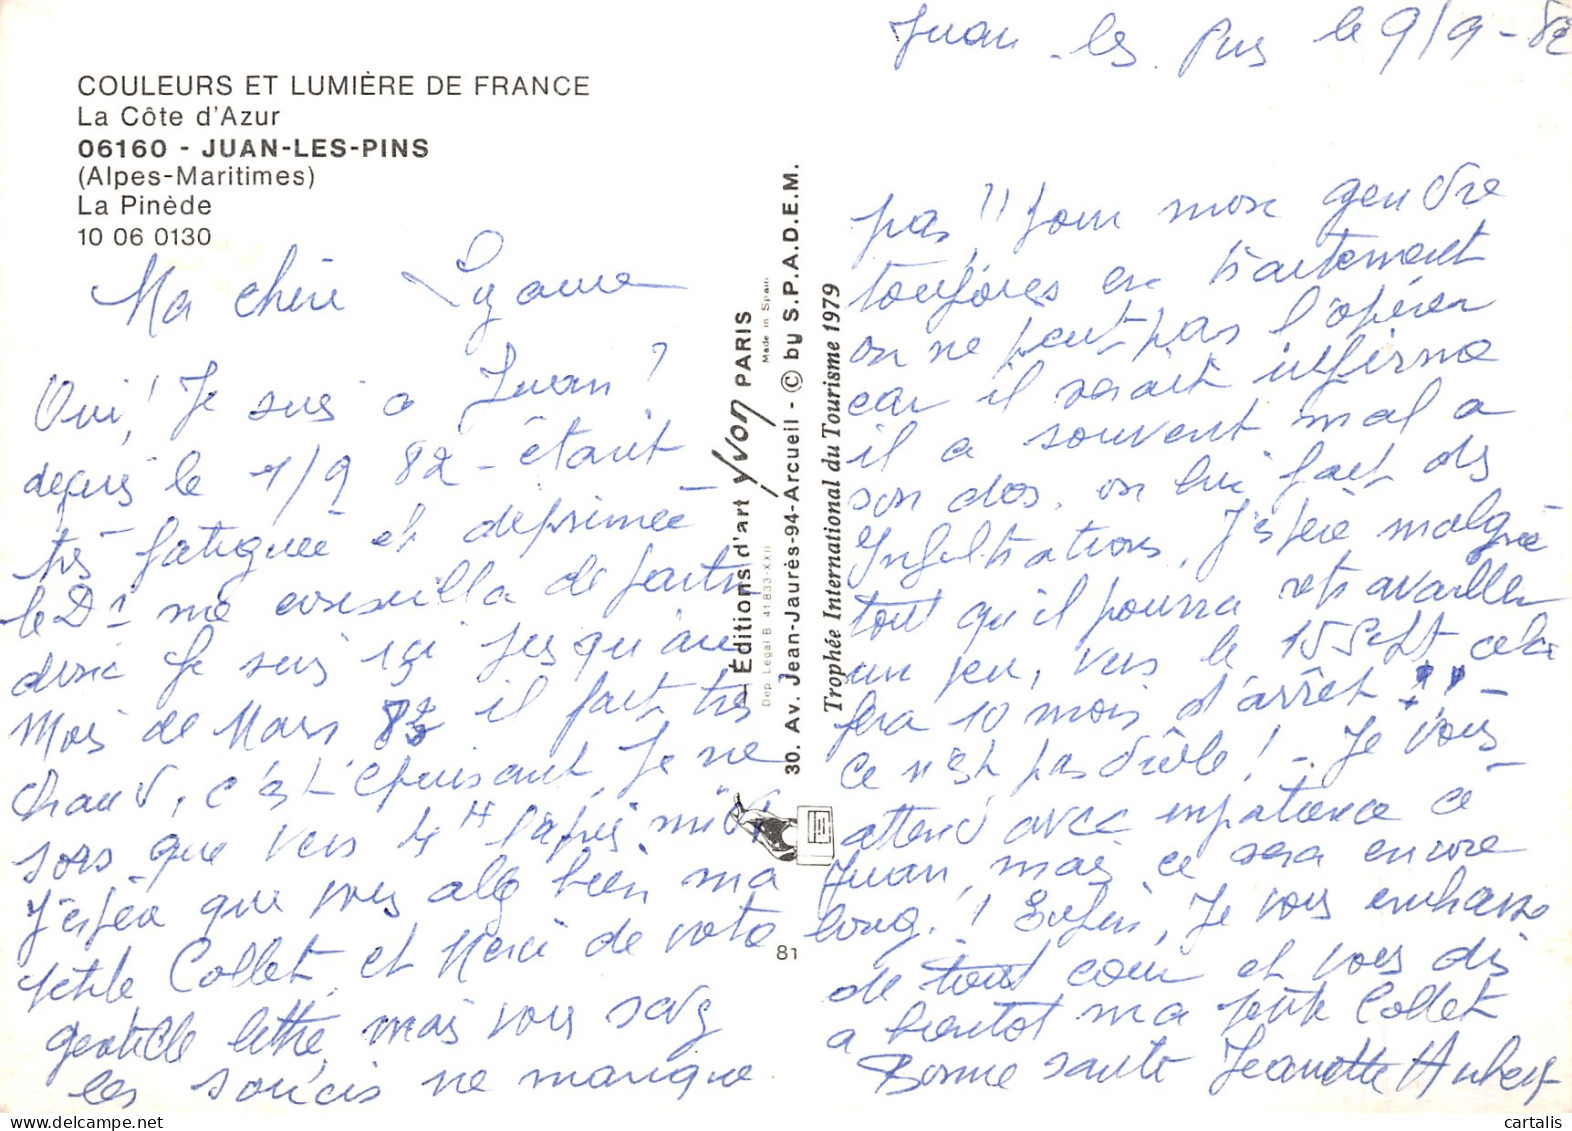 Juan-les-Pins le 9/9-82
COULEURS ET LUMIÈRE DE FRANCE
La Côte d'Azur
06160 - JUAN-LES-PINS
(Alpes-Maritimes)
La Pinède
10 06 0130
Ma chère Suzanne
Oui! Je suis à Juan?
depuis le 1/9 82 - étant
très fatiguée et déprimée
le Dr me conseilla de partir
donc Je suis ici jusqu'au
Mois de Mars 83 il fait très
chaud, c'est épuisant, Je ne
sors que vers 4H l'après midi
J'espère que vous allez bien ma
petite Collet, et Merci de votre
gentille lettre, mais vous savez
les soucis ne manque
Éditions d'art Yvon PARIS
Dep. Légal B. 41.833-XXII
Made in Spain
30. Av. Jean-Jaurès-94-Arcueil - © by S.P.A.D.E.M.
Trophée International du Tourisme 1979
81
pas!! pour mon gendre
toujours en traitement
on ne peut pas l'opérer
car il serait infirme
il a souvent mal a
son dos, on lui fait des
Infiltrations, J'espère malgrée
tout qu'il pourra retravailler
un peu, vers le 15 Sept cela
fera 10 mois d'arrêt!! -
Ce n'est pas drôle! - Je vous
attend avec impatience a
Juan, mais ce sera encore
long.! Enfin, Je vous embrasse
de tout cœur et vous dis
a bientot ma petite Collet
Bonne santé Jeannette Aubert
cartalis . cartalis.com